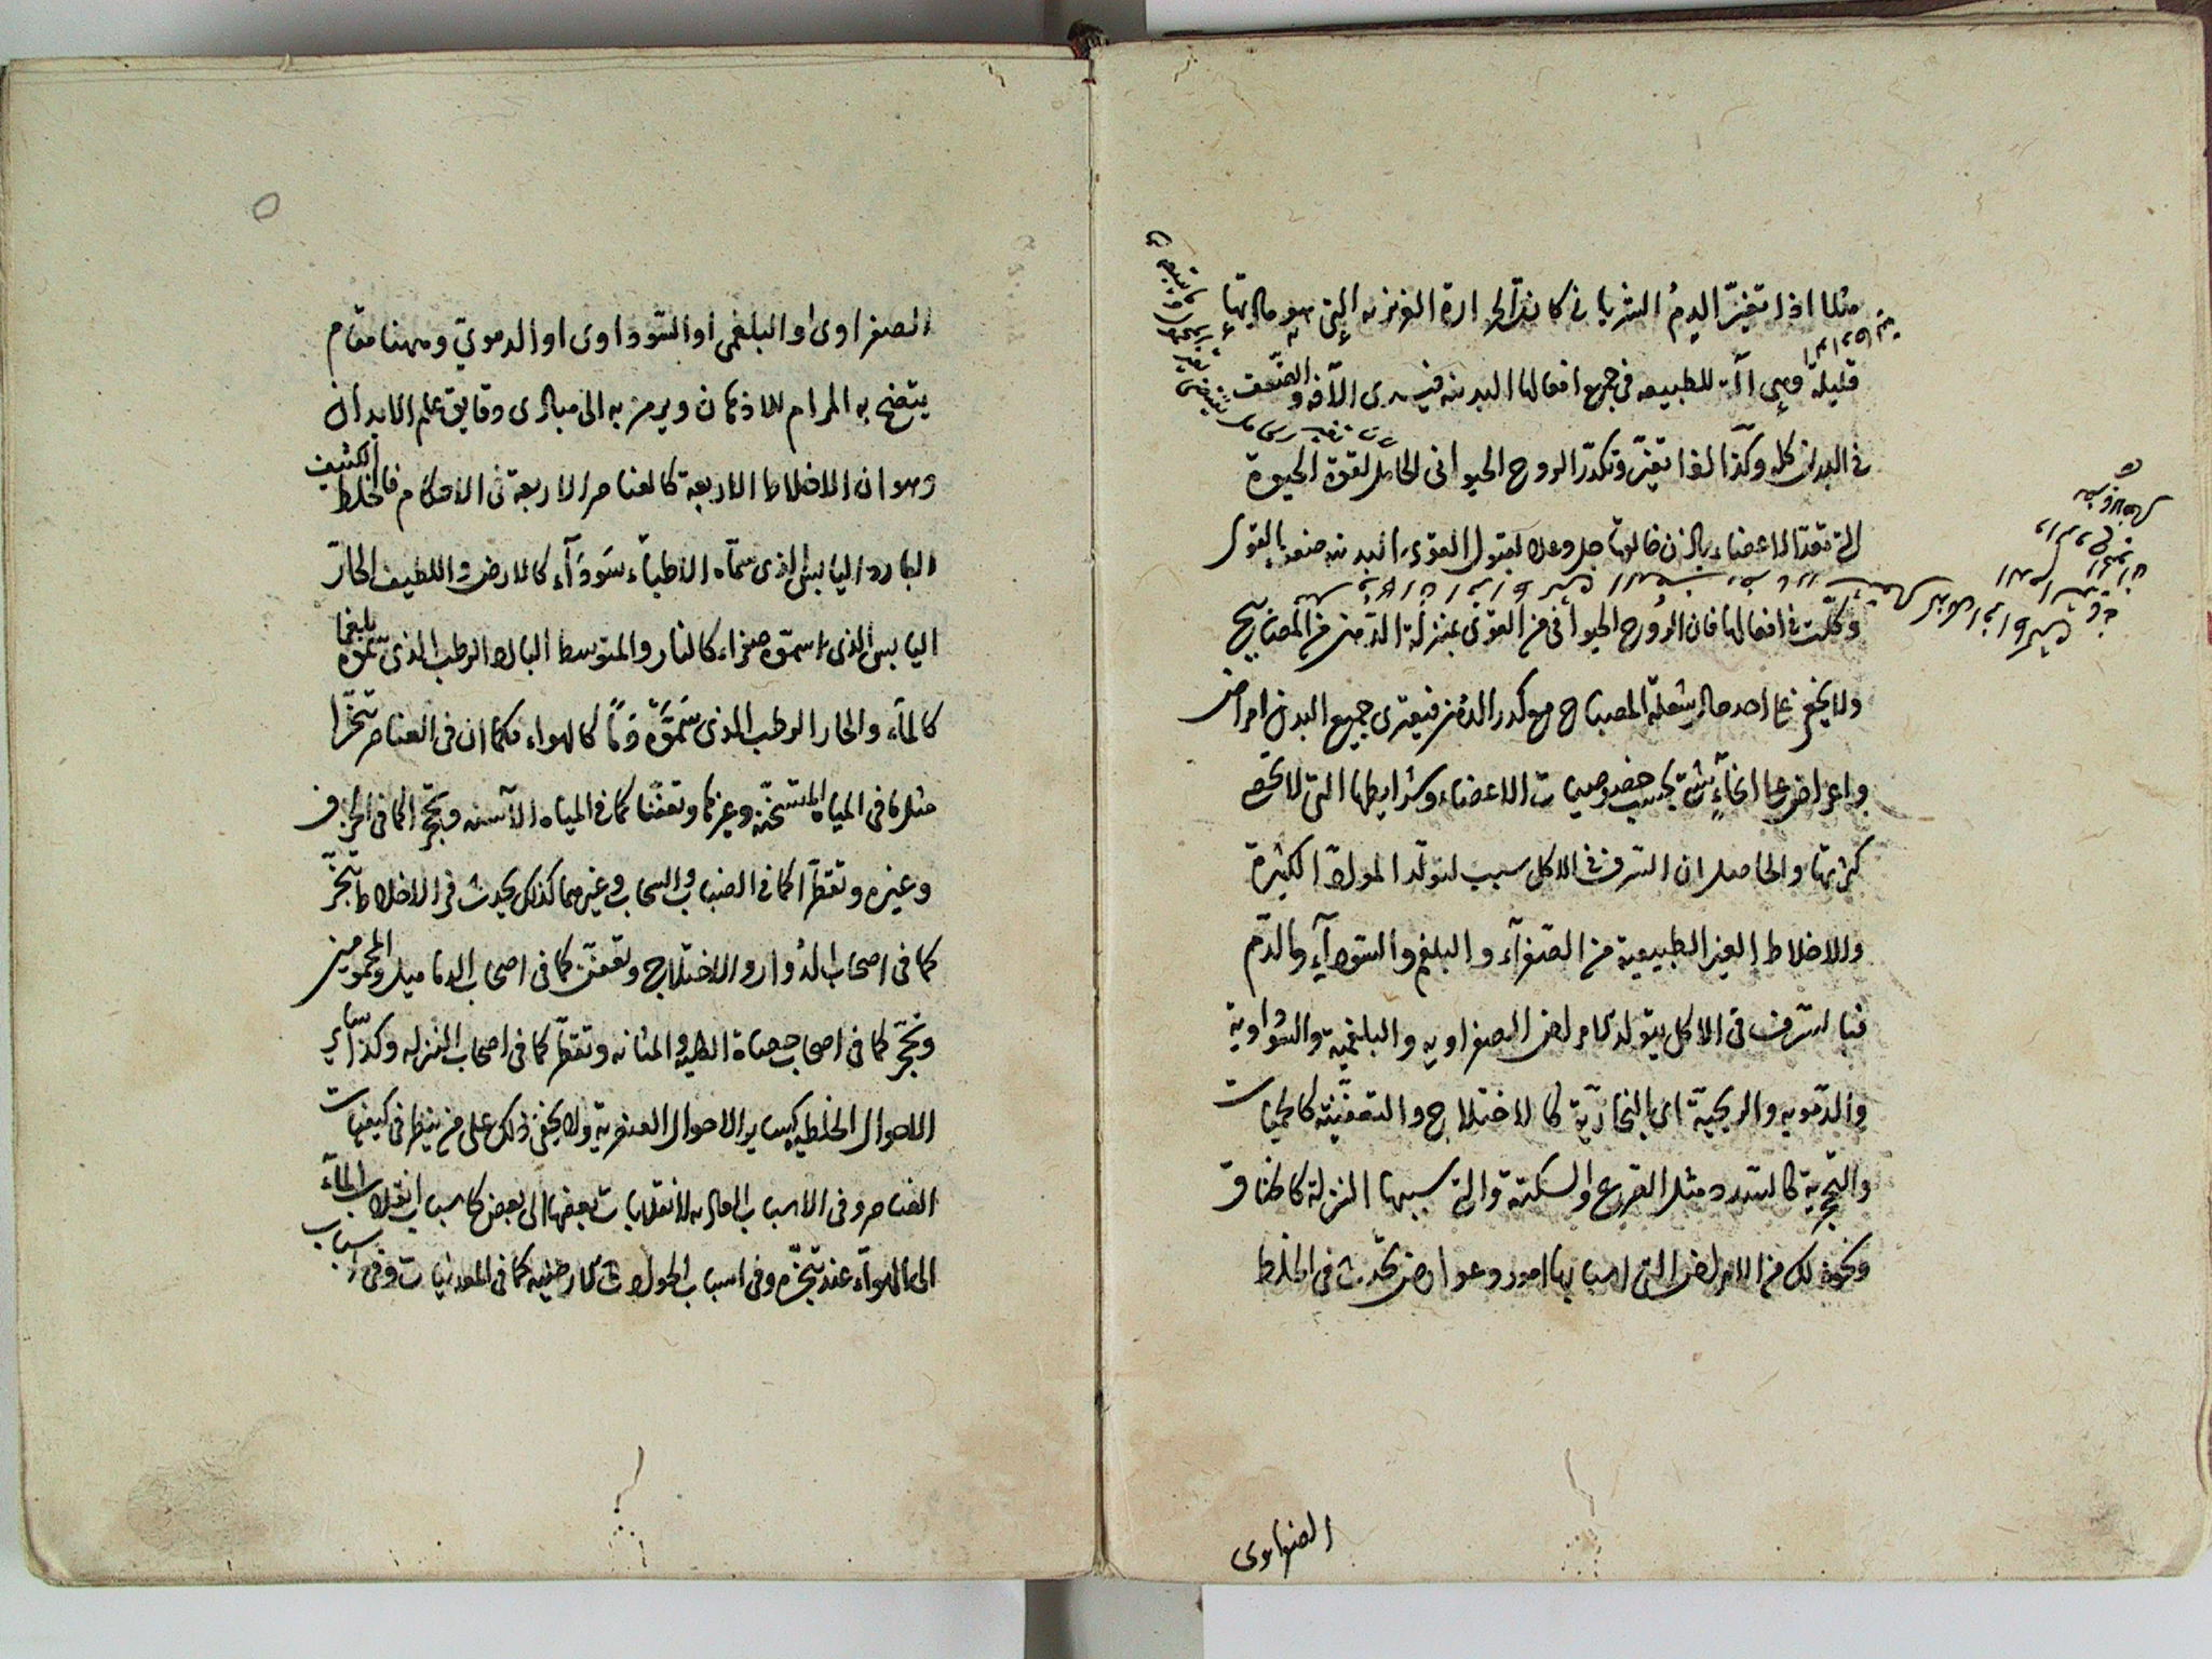 مثلا اذا تغيّر الدم الشرياني كانت الحرارة الغريزية التي هو مادتها
قليلة وهي آلة للطبيعة في جميع افعالها البدنية فيسرى الآفة والضعف
في البدن كله وكذا لما تغيّر وتكدّر الروح الحيواني الحامل لقوة الحيوة
التي تعدّ الاعضاء باذن خالقها جل وعلا لقبول القوى البدنيه ضعف القوى
وكلّت في افعالها فان الرُوح الحيواني في القوى بمنزلة الدّهن في المصابيح
ولا يخفى على احد حال شعلة المصباح مع كدر الدُهن فيعترى جميع البدن امراض
واعراض على انحآءٍ شتى بحسب خصوصيات الاعضاء وشرايطها التي لا تحصى
كثرتها والحاصل ان السّرف في الاكل سبب لتولّد المواد الكثيرة
والاخلاط الغير الطبيعية من الصّفرآء والبلغم والسّودآء والدّم
فبالسّرف في الاكل يتولد الامراض الصفراويه والبلغمية والسّوداوية
والدّمويه والريحيّة اى البخاريّة كالاختلاج والتعفّنيّة كالحميات
والتحجّرية كالسّدد مثل الصرع والسكتة والتي سببها النزلة كالخناق
ونحو ذلك من الامراض التي اسبابها امور وعوارض تحدث في الخلط
الصفراوى
الصفراوى او البلغمى او السّوداوى او الدموىّ وههنا مقام
يتضح به المرام للاذهان ويرمز به الى مبادى دقايق علم الابدان
وهو ان الاخلاط الاربعة كالعناصر الاربعة في الاحكام فالخلط الكثيف
البارد اليابس الذى سمّاه الاطبّاء سَودَآء كالارض واللطيف الحارّ
اليابس الذى سمّوه صفراء كالنار والمتوسط البارد الرطب الذى سمّوه بلغما
كالمآء والحار الرطب الذى سَمّوَهُ دَمًا كالهواء فكما ان في العناصر تبخّرا
مثل ما في المياه المتسخّنة وغيرها وتعفّنا كما في المياه الآسنه وتحجّرا كما في الخزف
وغيره وتقطّرا كما في الضباب والسحاب وغيرهما كذلك يحدث في الاخلاط تبخّر
كما في اصحاب الدُوار والاختلاج وتعفّن كما في اصحاب الدماميل والمحمومين
وتحجّر كما في اصحاب حصاة الكلية والمثانه وتقطّر كما في اصحاب النزله وكذا ساير
الاحوال الخلطيه كساير الاحوال العنصرية ولا يخفى ذلك على من ينظر في كيفيات
العناصر وفى الاسباب العاديه لانقلابات بعضها الى بعض كاسباب انقلاب المآء
الى الهوآء عند تبخّره وفى اسباب الحوادث الارضيه كما في المعدنيات وفى اسباب